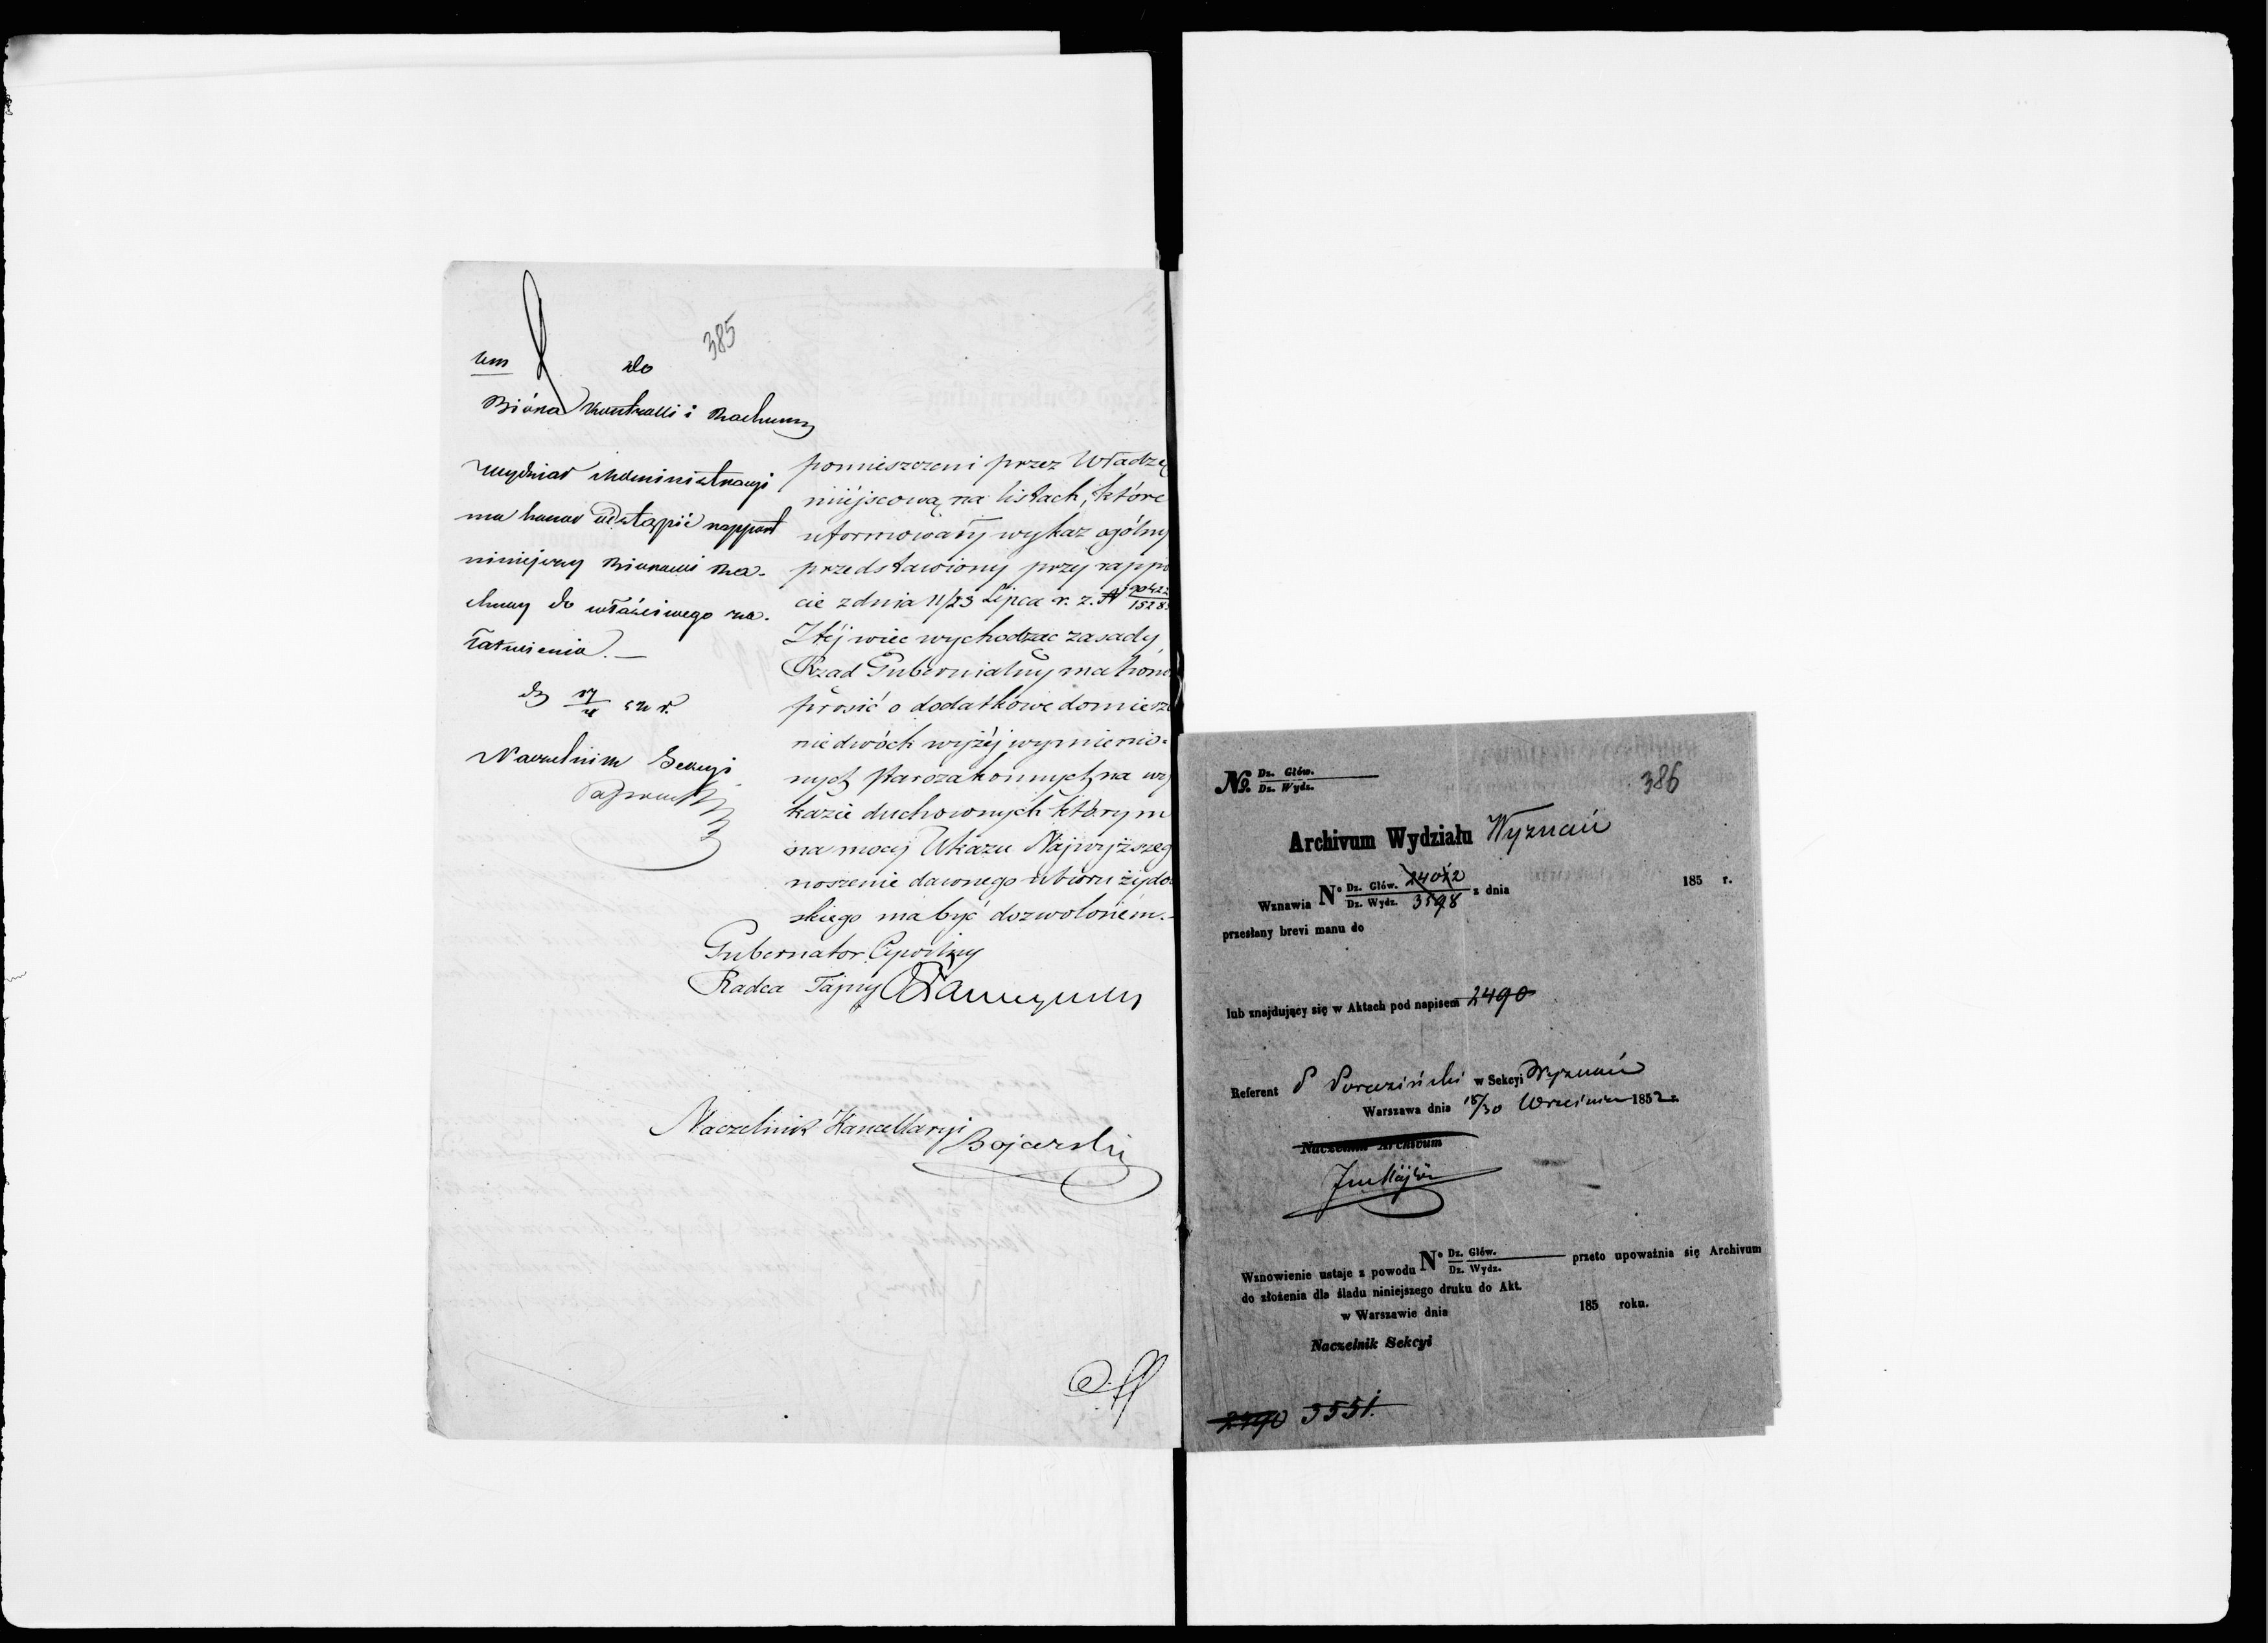 385
do
Biura Kontrolli i Rachuny
Wydział Administracyi
ma honor odstąpić rapport
niniejszy Biurowi Ra-
chuny do właściwego za-
łatwienia. —
Naczelnik Sekcyi
pomieszczeni przez Władzę
miéjscową na listach, które
uformowały wykaz ogólny
przedstawiony przy rappo
cie z dnia 11/23 Lipca r. z. N
Z téj więc wychodząc zasady
Rząd Gubernialny ma hono
prosić o dodatkowe domieszcze
nie dwóch wyżéj wymienio-
nych starozakonnych na wy
kazie duchownych którym
na mocy Ukazu Najwyższeg
noszenie dawnego ubioru żydo-
skiego ma być dozwoloném. -
Gubernator Cywilny
Radca Tajny
Naczelnik Kancellaryi
Bojarski
386
No. Dz. Głów.
Dz. Wydz.
Archivum Wydziału Wyznań
Wznawia No Dz. Głów. 24012 z dnia 185 r.
Dz. Wydz. 3598
przesłany brevi manu do
lub znajdujący się w Aktach pod napisem 2490
Referent P w Sekcyi Wyznań
Warszawa dnia 18/30 Września 1852 r.
Naczelnik Archivum
Wznowienie ustaje z powodu No Dz. Głów. przeto upoważnia się Archivum
Dz. Wydz.
do złożenia dla śladu niniejszego druku do Akt.
w Warszawie dnia 185 roku.
Naczelnik Sekcyi
2490 3551.